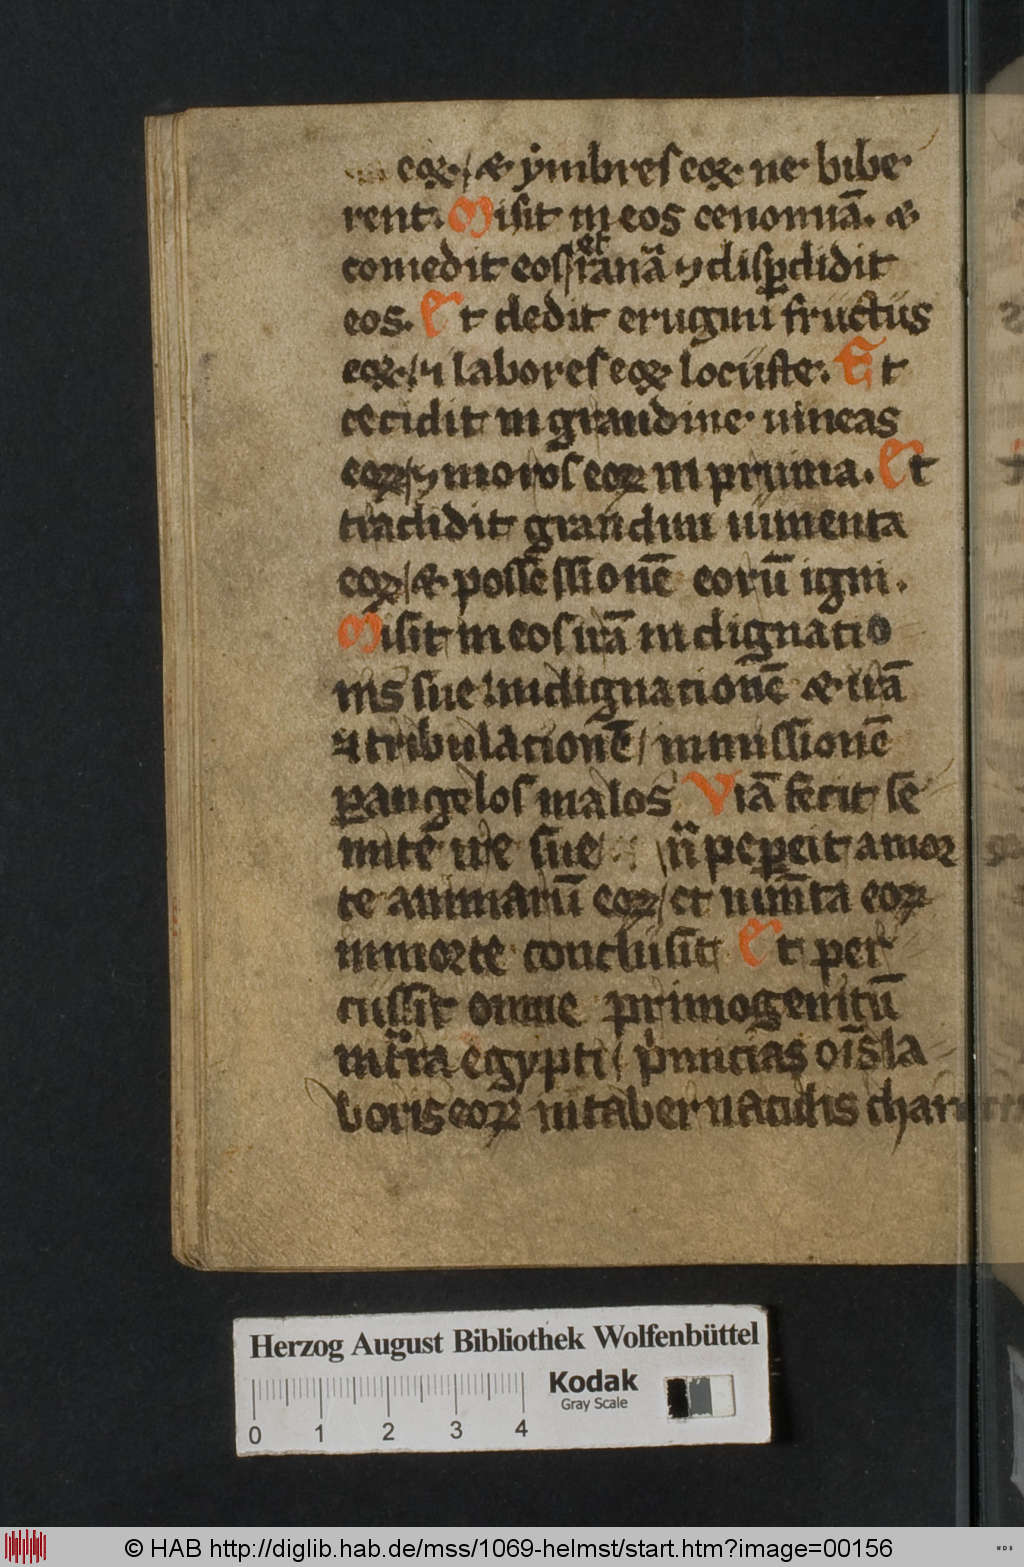 eoꝝ / & ẏmbres eoꝝ ne bibe
rent. Misit in eos cenomiā. &
comedit eos / et ranā ⁊ disꝑdidit
eos. Et dedit erugini fructus
eoꝝ / ⁊ labores eoꝝ locuste. Et
cecidit in grandine uineas
eoꝝ / ⁊ moros eoꝝ in pruina. Et
tradidit grandini iumenta
eoꝝ / & possessionē eorū igni.
Misit in eos irā indignatio
nis sue indignationē & irā
⁊ tribulationē / inmissionē
ꝑ angelos malos Viā fecit se
mitē ire sue n̄ peꝑcit a mor
te animarū eoꝝ / et ium̄ta eoꝝ
in morte conclusit Et per
cussit omne primogenitū
in tr̄ra egypti / p'micias oīs la
boris eoꝝ in tabernaculis cham
Herzog August Bibliothek Wolfenbüttel
Kodak
Gray Scale
0 1 2 3 4
© HAB http://diglib.hab.de/mss/1069-helmst/start.htm?image=00156